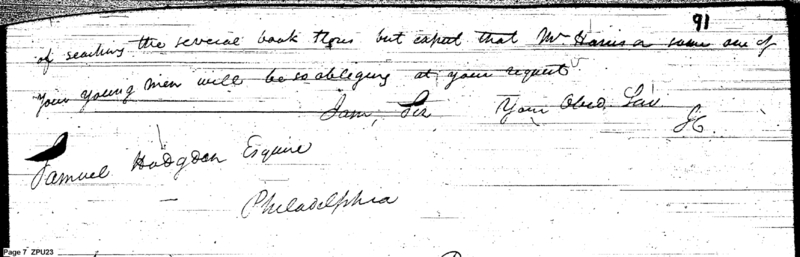 91
of searching the several book thus but expect that Mr Harris or some one of
your young men will be so obliging at your request
I am, Sir Your Obed. Ser
JC.
Samuel Hodgdon Esquire
Philadelphia
Page 7 ZPU23